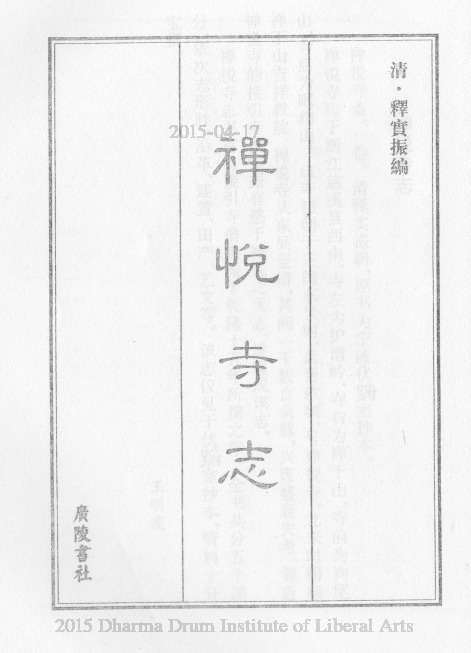 清·釋實振編
禪悅寺志
廣陵書社
2015-04-17
2015 Dharma Drum Institute of Liberal Arts